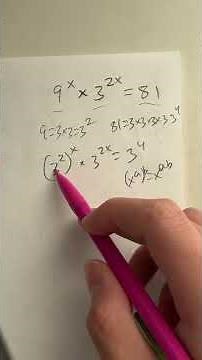 9^x × 3^{2x} = 81
9=3×2=3^2 81=3×3×3×3 3^4
(3^2)^x × 3^{2x} = 3^4
(x^a)^b=x^{ab}